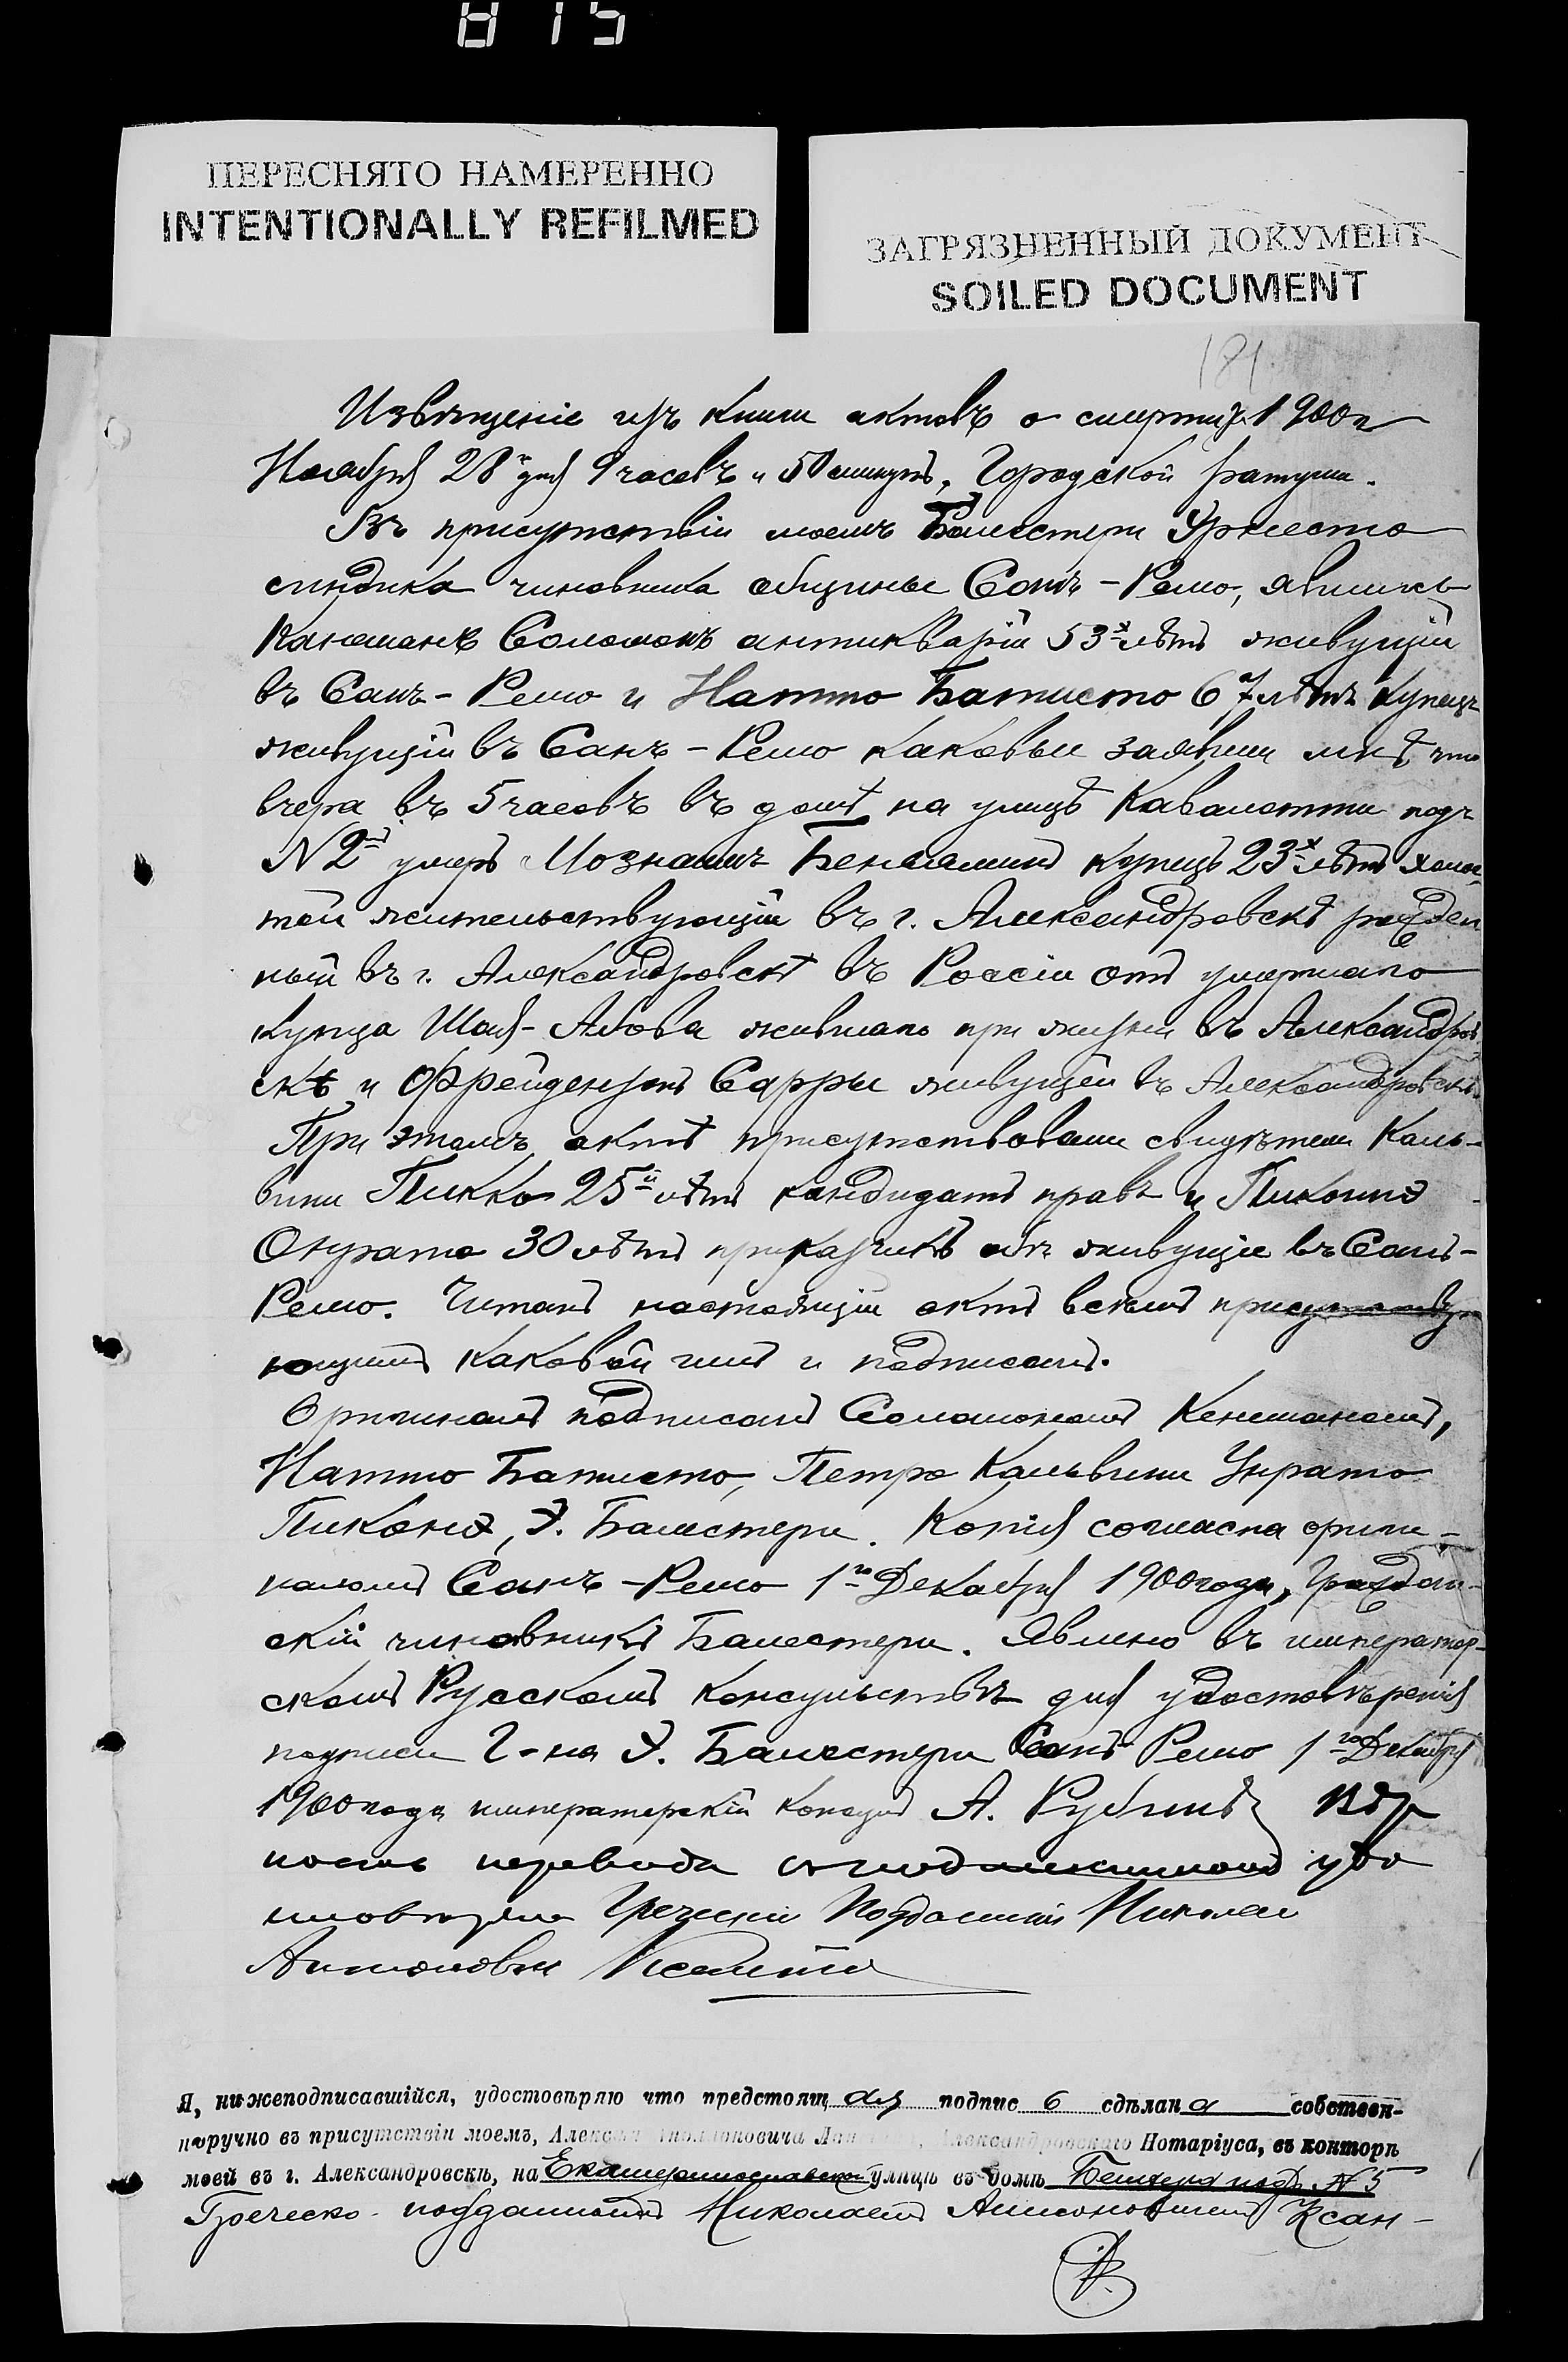 815
ПЕРЕСНЯТО НАМЕРЕННО
INTENTIONALLY REFILMED
ЗАГРЯЗНЕННЫЙ ДОКУМЕНТ
SOILED DOCUMENT
181
Извѣщеніе изъ книги актовъ о смерти 1900 г
Ноября 28 дня 9 часовъ и 50 минутъ, Городской ратуши.
Въ присутствіи моемъ Балестери Эрнесто
синдика чиновника общины Санъ-Ремо, явились
Канеманъ Соломонъ антикварій 53х лѣтъ живущій
въ Санъ-Ремо и Натто Батисто 67 лѣтъ купецъ
живущій въ Санъ-Ремо каковые заявили мнѣ что
вчера въ 5 часовъ въ домѣ на улицѣ Кавалотти подъ
N 2мъ умеръ Мознаимъ Беньяминъ купецъ 23х лѣтъ холос-
той жительствующій въ г. Александровскѣ рожден
ный въ г. Александровскѣ въ Россіи отъ умершаго
купца Шая-Абова жившаго при жизни въ Александров
скѣ и Фрейдензонъ Сарры живущей въ Александровскѣ.
При этомъ актѣ присутствовали свидѣтели Каль-
вини Пикко 25й лѣтъ кандидатъ правъ и Пиконэ
Онурато 30 лѣтъ приказчикъ оба живущіе въ Санъ-
Ремо. Читанъ настоящій актъ всѣмъ присутству
ющимъ каковой ими и подписанъ.
Оригиналъ подписали Соломономъ Кенеманомъ,
Натто Батисто, Петро Кальвини Унрато
Пиконэ, Э. Балестери. Копія согласна ориги-
наломъ Санъ-Ремо 1го Декабря 1900 года, Граждан-
скій чиновникъ Балестери. Явлено въ император-
скомъ Русскомъ Консульствѣ для удостовѣренія
подписи Г-на Э. Балестери Санъ Ремо 1го Декабря
1900 года императорскій консулъ А. Рубинъ Вѣр
ность перевода съ подлинникомъ удо
стовѣряю Греческій Подданный Николай
Антоновъ
Я, нижеподписавшійся, удостовѣряю что предстоящ ая подпис ь сдѣлан а собствен-
норучно въ присутствіи моемъ, Александровскаго Нотаріуса, въ конторѣ
моей въ г. Александровскѣ, на Екатеринославской улицѣ въ домѣ подъ N 5
Греческо-подданнымъ Николаемъ Антоновымъ Ксан-